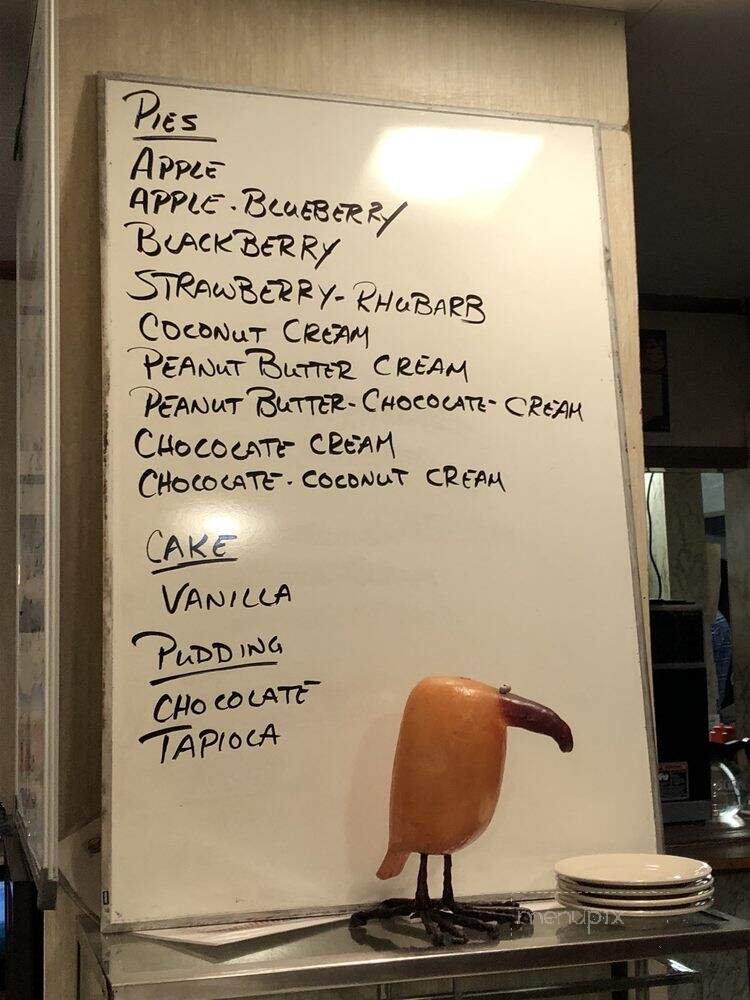 PIES
APPLE
APPLE-BLUEBERRY
BLACKBERRY
STRAWBERRY-RHUBARB
COCONUT CREAM
PEANUT BUTTER CREAM
PEANUT BUTTER-CHOCOLATE-CREAM
CHOCOLATE CREAM
CHOCOLATE-COCONUT CREAM
CAKE
VANILLA
PUDDING
CHOCOLATE
TAPIOCA
menupix